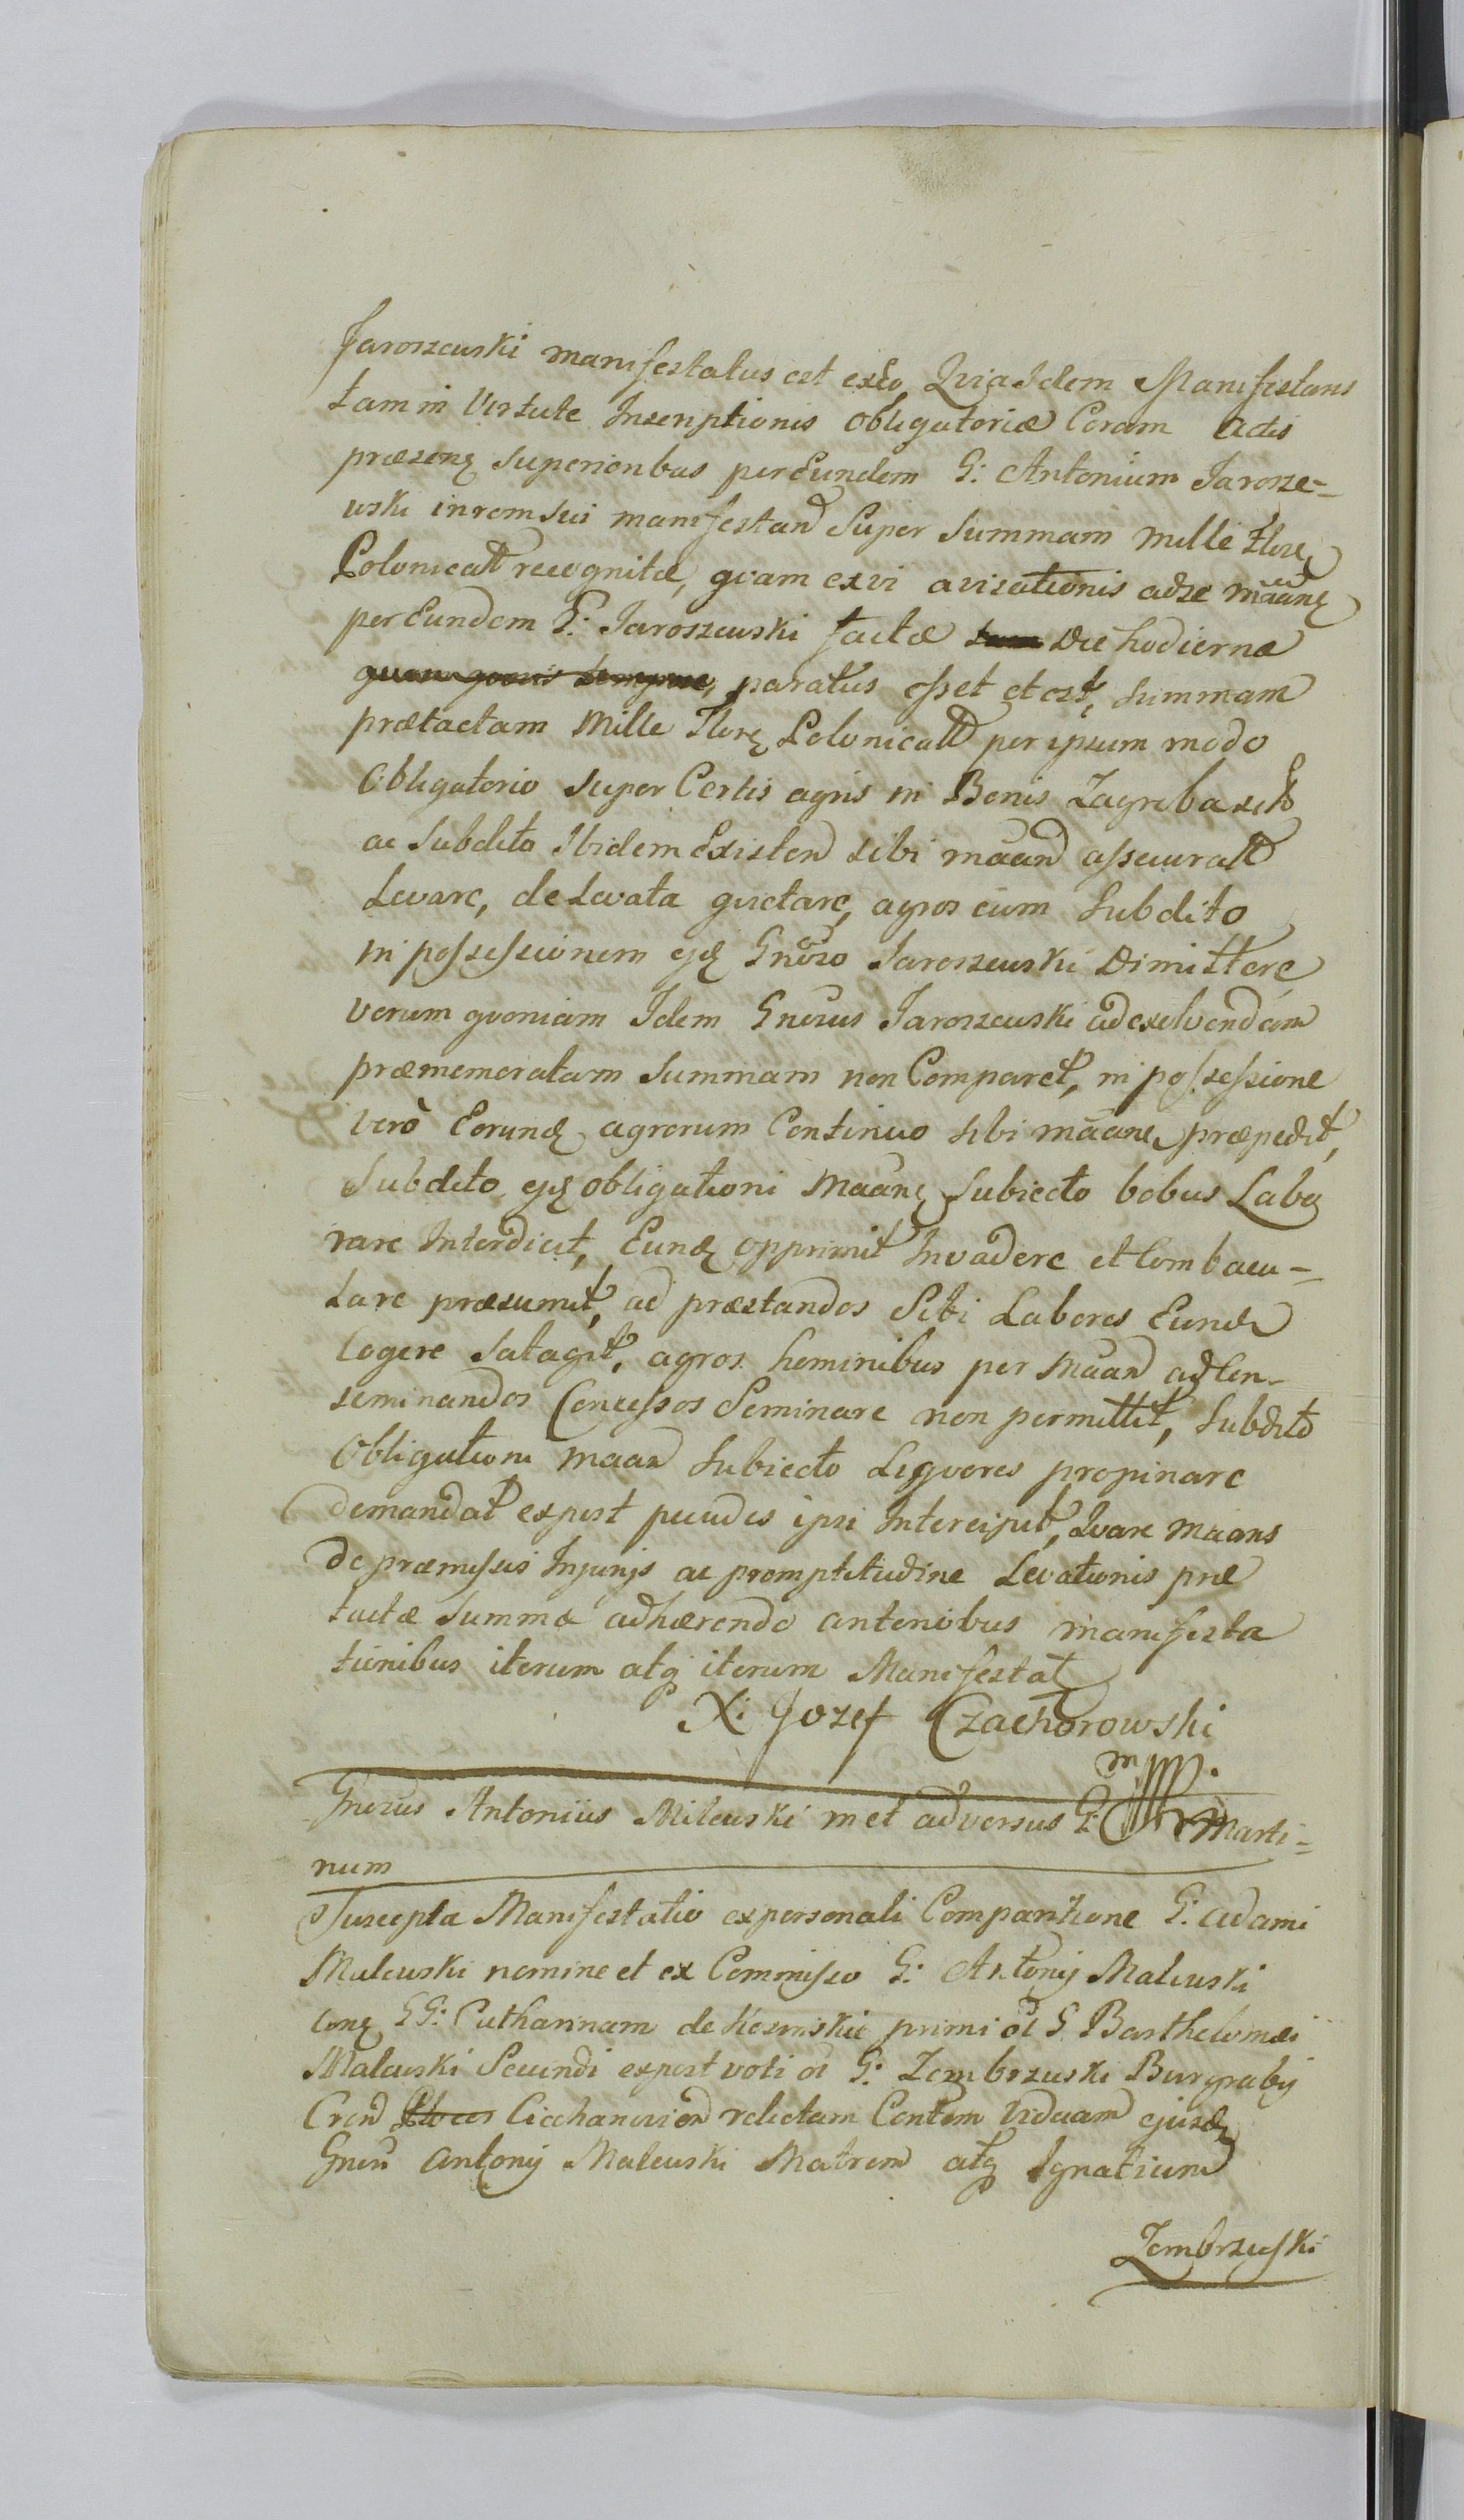 Jaroszewski manifestatus est exeo, Quia Idem Manifestans
tam in Virtute Inscriptionis Obligatoriæ Coram Actis
præsenz Superioribus per Eundem G: Antonium Jarosze-
wski in rem sui manifestan Super Summam mille flor
Polonicall recognitæ, quam exvi avisationis adse maanz
per Eundem G: Jaroszewski factæ die hodierna
paratus esset et est, Summam
prætactam Mille Flor Polonicall per ipsum modo
Obligatorio super Certis agris in Bonis Zagroba
ac Subdito Ibidem Existen sibi maan assecurall
Levare, de Levata quietare, agros cum Subdito
in possessionem ejd Gnoso Jaroszewski Dimittere
verum quoniam Idem Gnosus Jaroszewski ad exolvendam
præmemoratam Summam non Comparet, in possessione
verò Eorund agrorum Continuo sibi maane præpedit,
Subdito ejd obligationi Maanz Subiecto bobus Labo
rare Interdicit, Eund opprimit Invadere et Combacu-
lare præsumit, ad præstandos Sibi Labores Eund
Cogere Satagit, agros hominibus per Maan ad Con-
seminandos Concessos Seminare non permittit, Subdito
Obligationi maan Subiecto Liquores propinare
demandat expost pecudes ipsi Intercipit, Quare maans
de præmissis Injurijs ac promptitudine Levationis præ
tactæ Summæ adhærendo anterioribus manifesta
tionibus iterum atq iterum Manifestat
X: Jozef Czachorowski
mpp.
Gnosus Antonius Milewski met adversus G: Marti-
num
Suscepta Manifestatio ex personali Comparitione G: Adami
Malewski nomine et ex Commisso G: Antonij Malewski
conz GG: Catharinam de Kozmskie primi ol G. Barthelomæi
Malewski Secundi expost voti ol G: Zembrzuski Burgrabij
Cren Ciechanovien relictam Conttem Viduam ejusd
Gnesi Antonij Malewski Matrem atq Ignatium
Zembrzuski